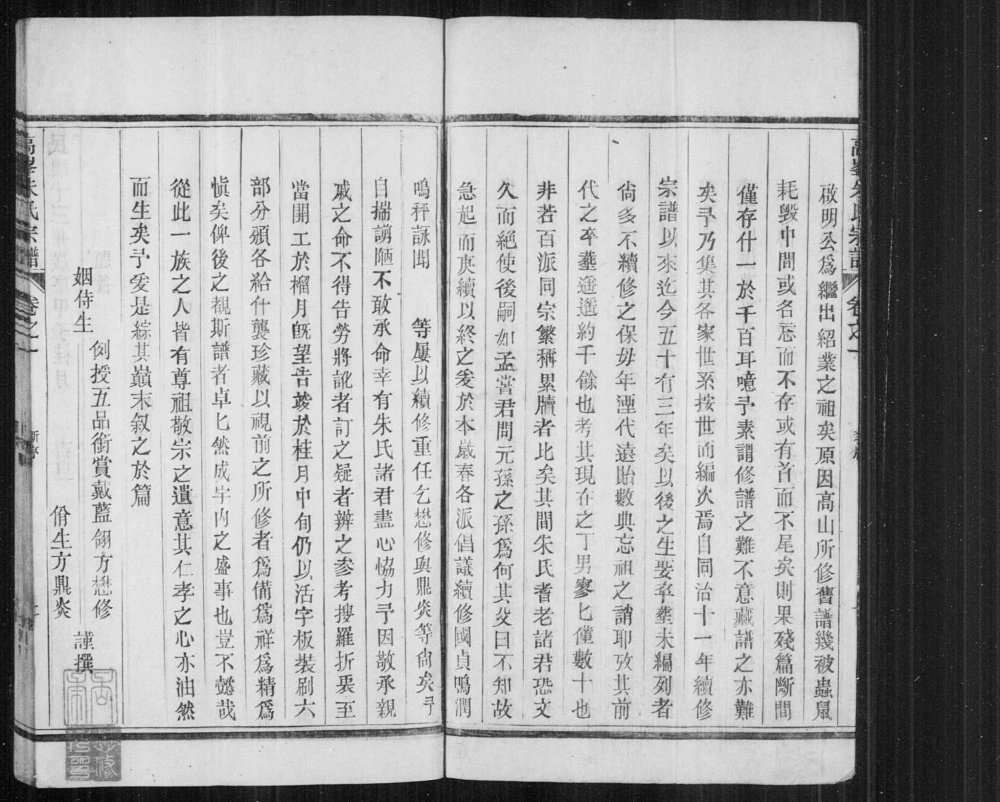 啟明公爲繼出紹業之祖矣原因高山所修舊譜幾被蟲鼠
耗毀中間或名忘而不存或有首而不尾矣則果殘篇斷間
僅存什一於千百耳噫予素謂修譜之難不意藏譜之亦難
矣予乃集其各家世系按世而編次焉自同治十一年續修
宗譜以來迄今五十有三年矣以後之生娶卒塟未編列者
尙多不續修之保毋年湮代遠貽數典忘祖之誚耶攷其前
代之卒塟遥遥約千餘也考其現在之丁男寥匕僅數十也
非若百派同宗繁稱累牘者比矣其間朱氏耆老諸君恐文
久而絕使後嗣如孟嘗君問元孫之孫爲何其父曰不知故
急起而庚續以終之爰於本歲春各派倡議續修國貞鳴潤
鳴秤詠聞　等屢以續修重任乞懋修與鼎炎等尙矣予
自揣謭陋不敢承命幸有朱氏諸君盡心恊力予因敬承親
戚之命不得告勞將訛者訂之疑者辨之參考搜羅折衷至
當開工於榴月旣望告竣於桂月中旬仍以活字板裝刷六
部分頒各給什襲珍藏以視前之所修者爲備爲祥爲精爲
愼矣俾後之覩斯譜者卓匕然成宇內之盛事也豈不懿哉
從此一族之人皆有尊祖敬宗之遺意其仁孝之心亦油然
而生矣予爰是綜其巔末叙之於篇
姻侍生
例授五品銜賞戴藍翎方懋修
佾生方鼎炎
謹撰
高峯朱氏宗譜
卷之一